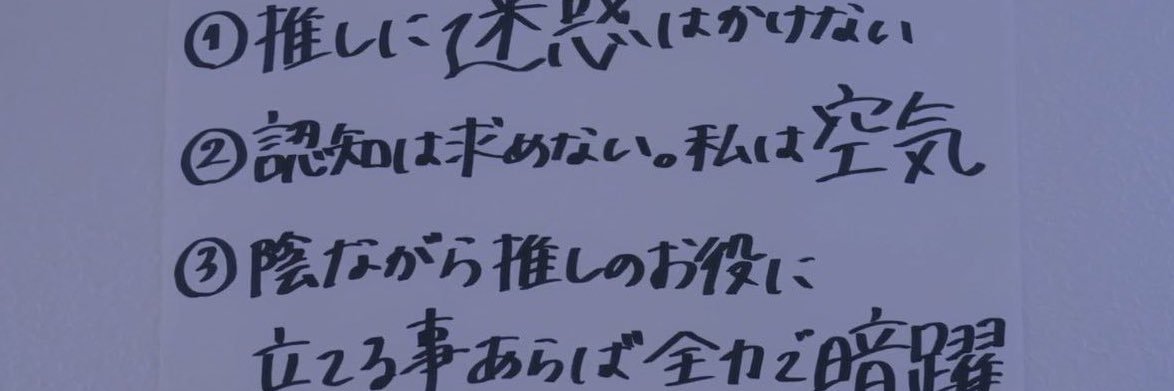 ①推しに迷惑はかけない
②認知は求めない。私は空気
③陰ながら推しのお役に
立てる事あらば全力で暗躍